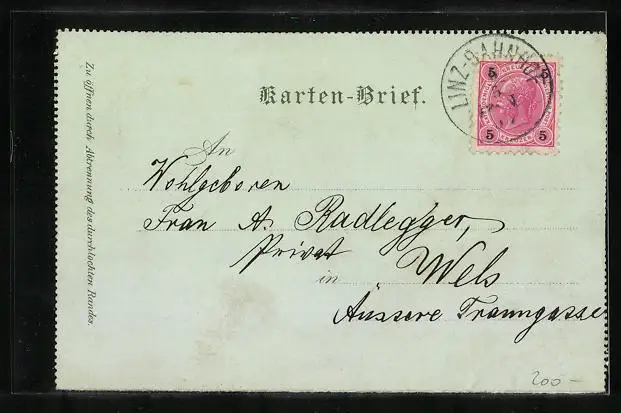 Karten-Brief.
LINZ-BAHNHOF
5 5
5 5
An
Wohlgeboren
Frau A. Radlegger,
Privat
in Wels
Äussere Traungasse
Zu öffnen durch Abtrennung des durchlochten Randes.
200-